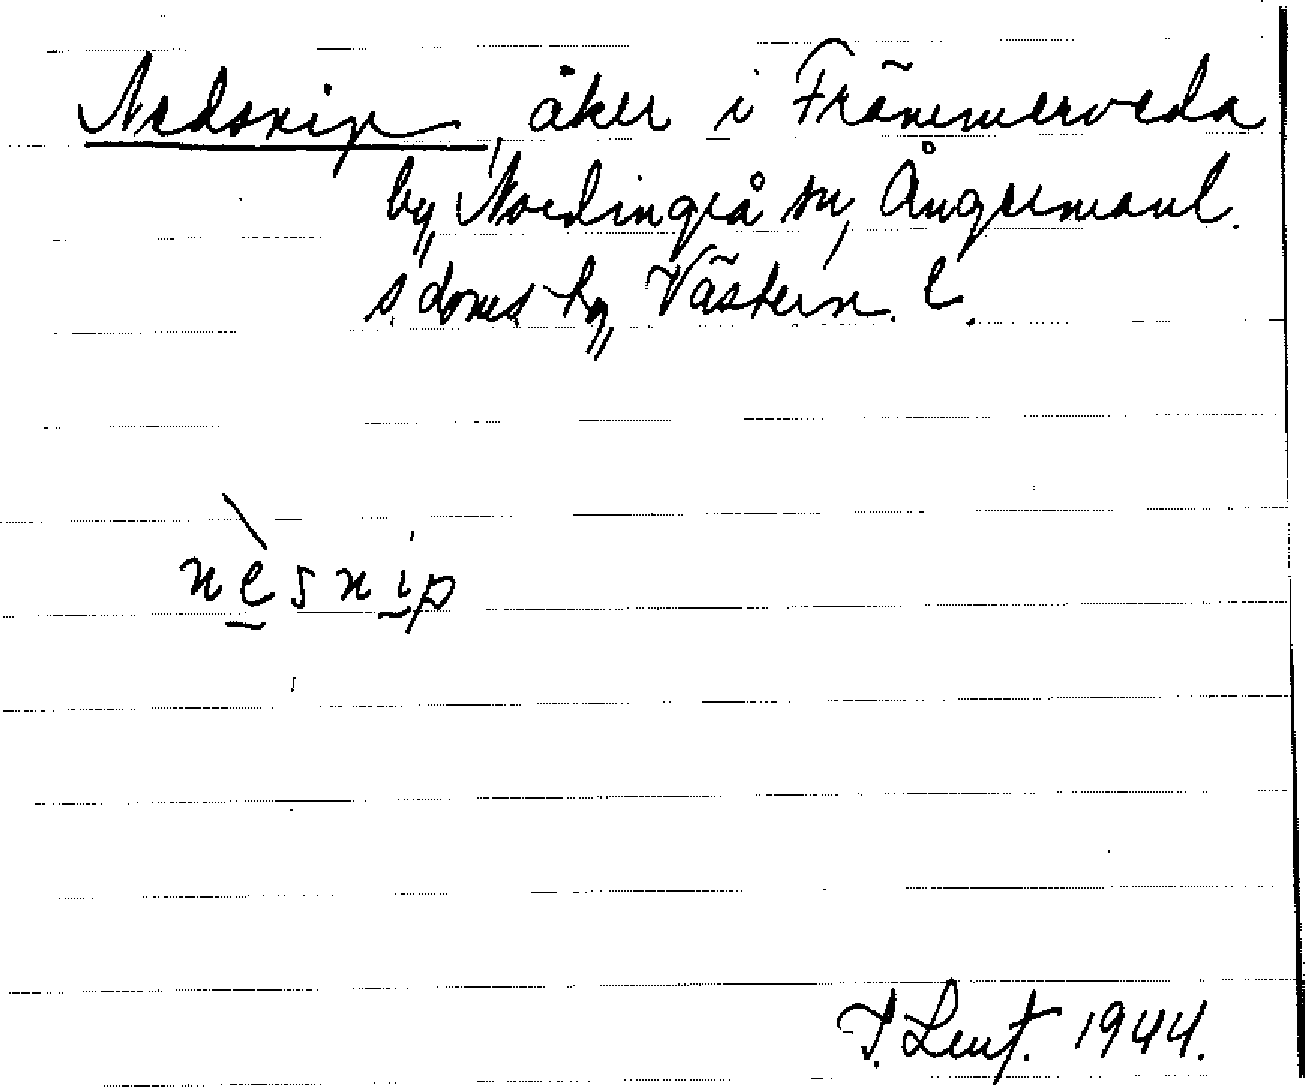 Nedsnip, åker i Främmerveda
by, Nordingrå sn, Ångermanl.
s. doms by, Västern. l.
nèsnip
1944.